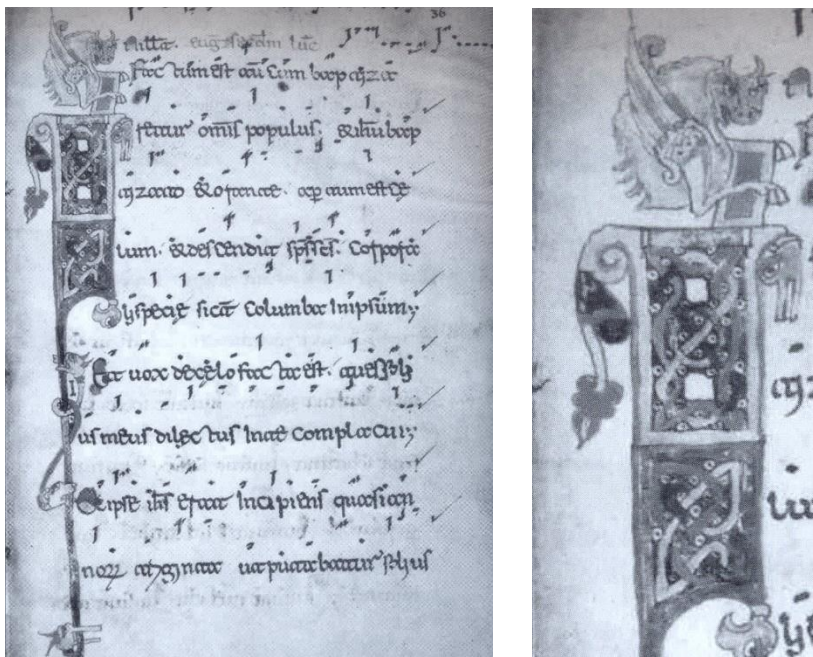 36
secdm luc
Factum est au cum bap tiza
retur omis populus. & ihu bap
tizato & orante. aper tum est ce
lum. & descendit sps scs. Corpora
li specie sicut columba In ipsum
Et uox de celo facta est. tu es fili
us meus dilec tus Inte complacui
Et ipse ihs erat Incipiens quasi an
norum ut putabatur filius